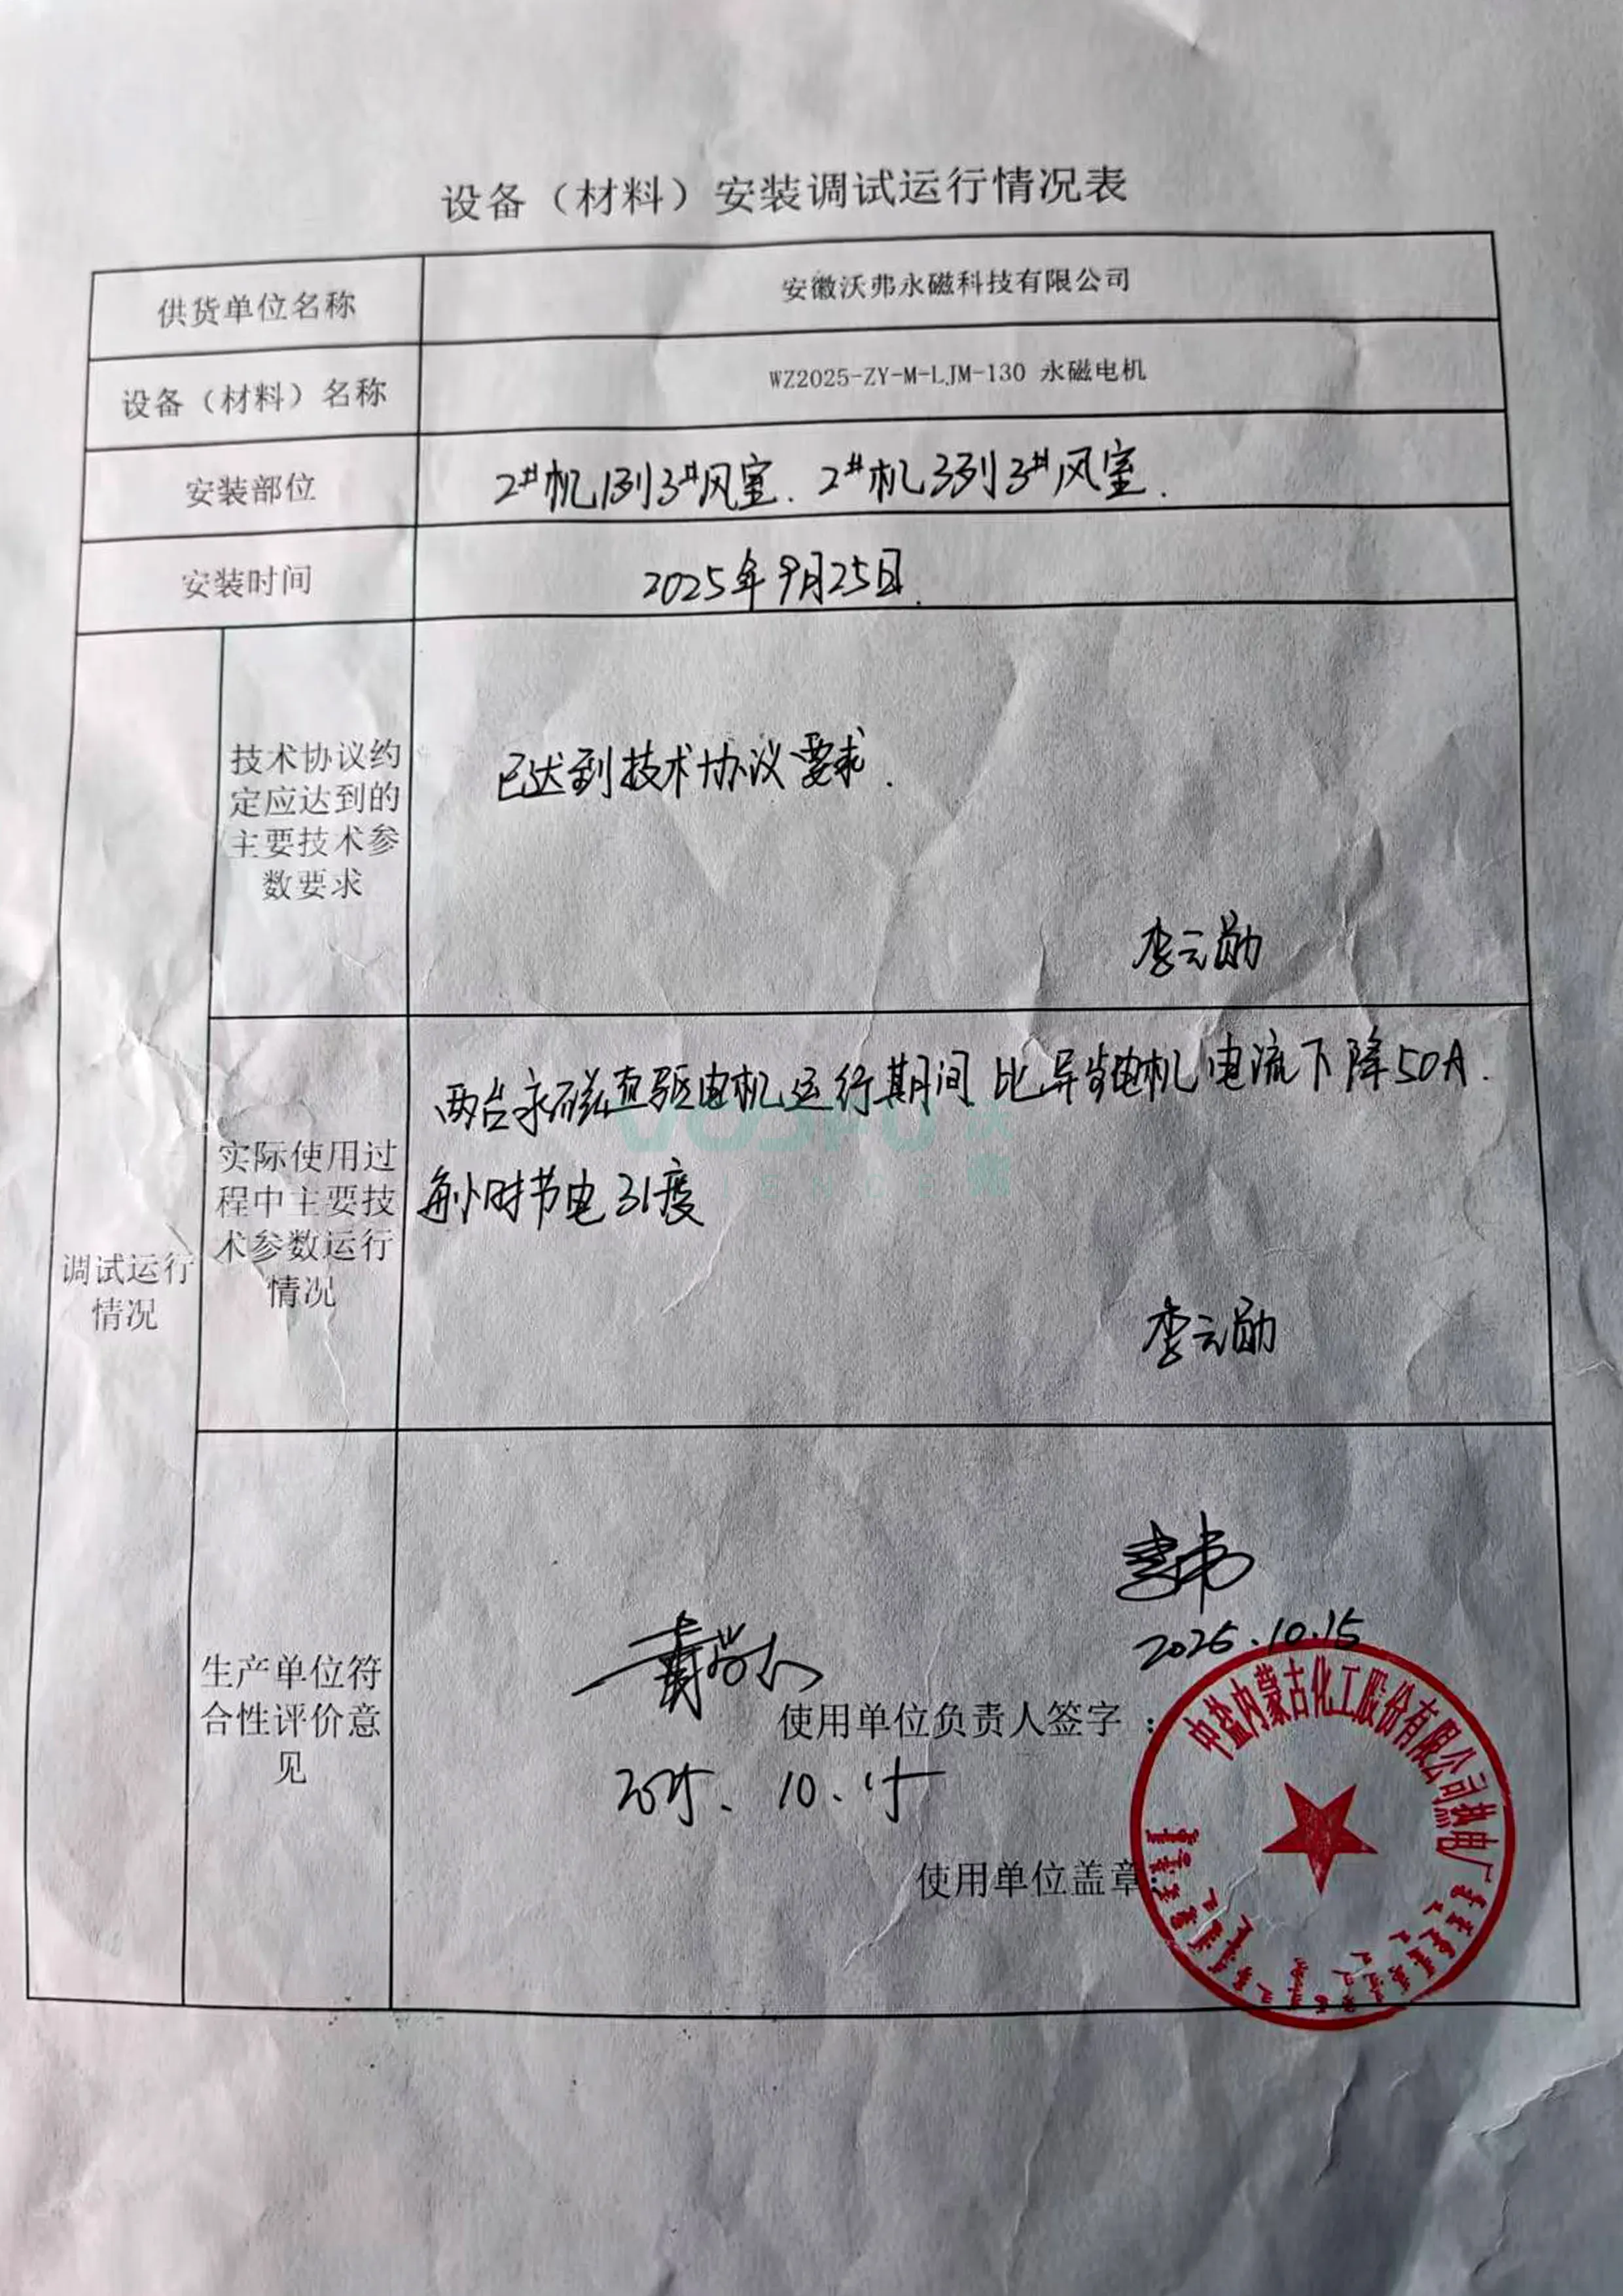 设备（材料）安装调试运行情况表
供货单位名称
安徽沃弗永磁科技有限公司
设备（材料）名称
WZ2025-ZY-M-LJM-130 永磁电机
安装部位
2#机1列3#风室. 2#机3列3#风室.
安装时间
2025年9月25日.
调试运行
情况
技术协议约
定应达到的
主要技术参
数要求
已达到技术协议要求.
李云勋
实际使用过
程中主要技
术参数运行
情况
两台永磁直驱电机运行期间 比异步电机 电流下降50A.
每小时节电31度
李云勋
生产单位符
合性评价意
见
2025.10.15
使用单位负责人签字：
2025. 10. 15
使用单位盖章：
中盐内蒙古化工股份有限公司热电厂